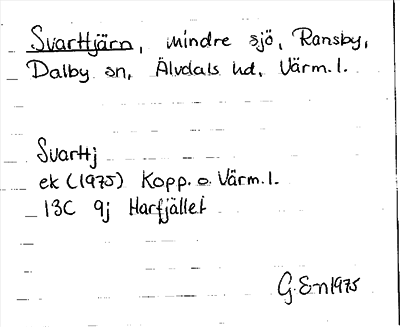 Svarttjärn, mindre sjö, Ransby,
Dalby sn, Älvdals hd, Värm. l.
Svarttj
ek (1975) Kopp. o. Värm. l.
13C 9j Harfjället
G.E-n 1975